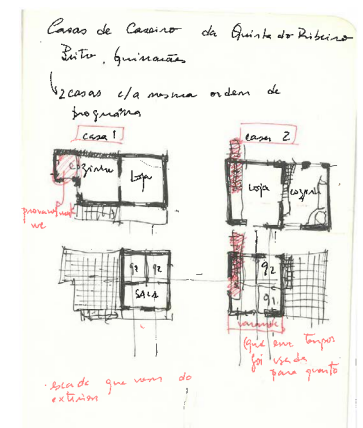 Casas de Caseiro da Quinta do Ribeiro
Brito, Guimarães
2 casas c/a mesma ordem de
programa
casa 1
casa 2
Cozinha
Loja
Loja
cozinha
q2
q2
SALA
q2
q1
varanda
(que em tempos
foi usada
para quarto
escada que vem do
exterior